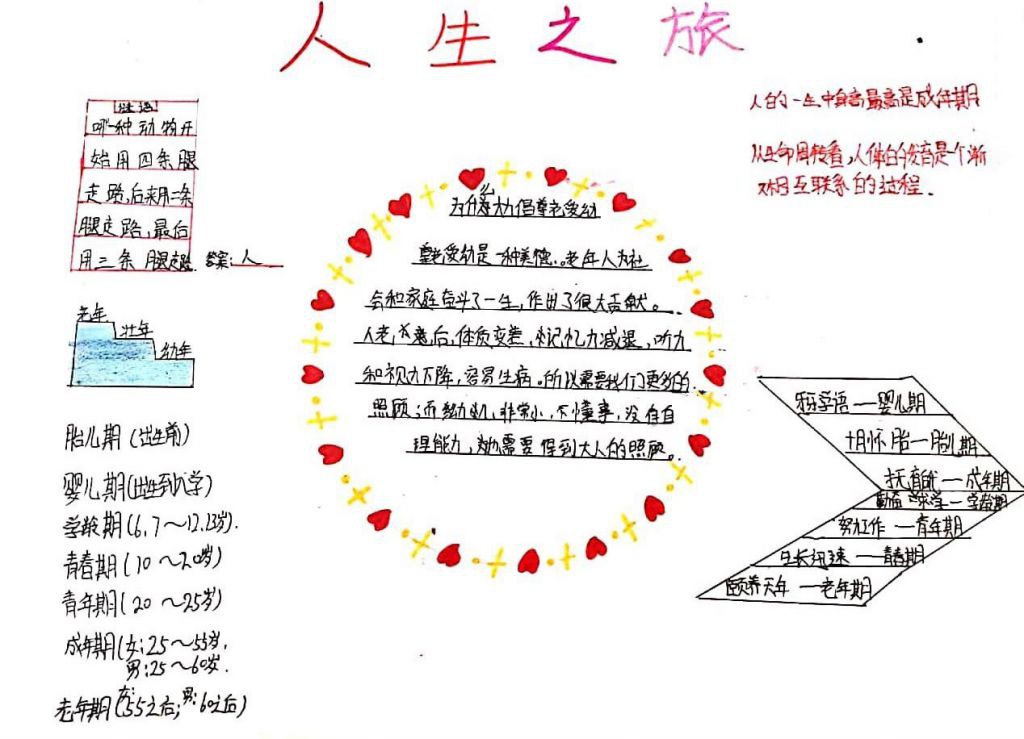 人生之旅
谜语
哪一种动物开
始用四条腿
走路,后来用二条
腿走路,最后
用三条腿走路
答案:人
老年
壮年
幼年
胎儿期(出生前)
婴儿期(出生到入学)
学龄期(6,7~12.13岁).
青春期(10~20岁)
青年期(20~25岁)
成年期(女:25~55岁,
男:25~60岁.
老年期(女:55之后;男:60之后)
为什么要大力倡尊老爱幼
尊老爱幼是一种美德.。老年人为社
会和家庭奋斗了一生,作出了很大贡献。
人老,后,体质变差,记忆力减退,听力
和视力下降,容易生病。所以需要我们更多的
照顾;而幼儿,非常小,不懂事,没有自
理能力,需要得到大人的照顾。
人的一生中身高最高是成年期
从生命周转看,人体的发育是一个渐
相互联系的过程.
牙牙学语—婴儿期
十月怀胎—胎儿期
抚育—成年期
求学—学龄期
努力工作—青年期
生长迅速—青春期
颐养天年—老年期